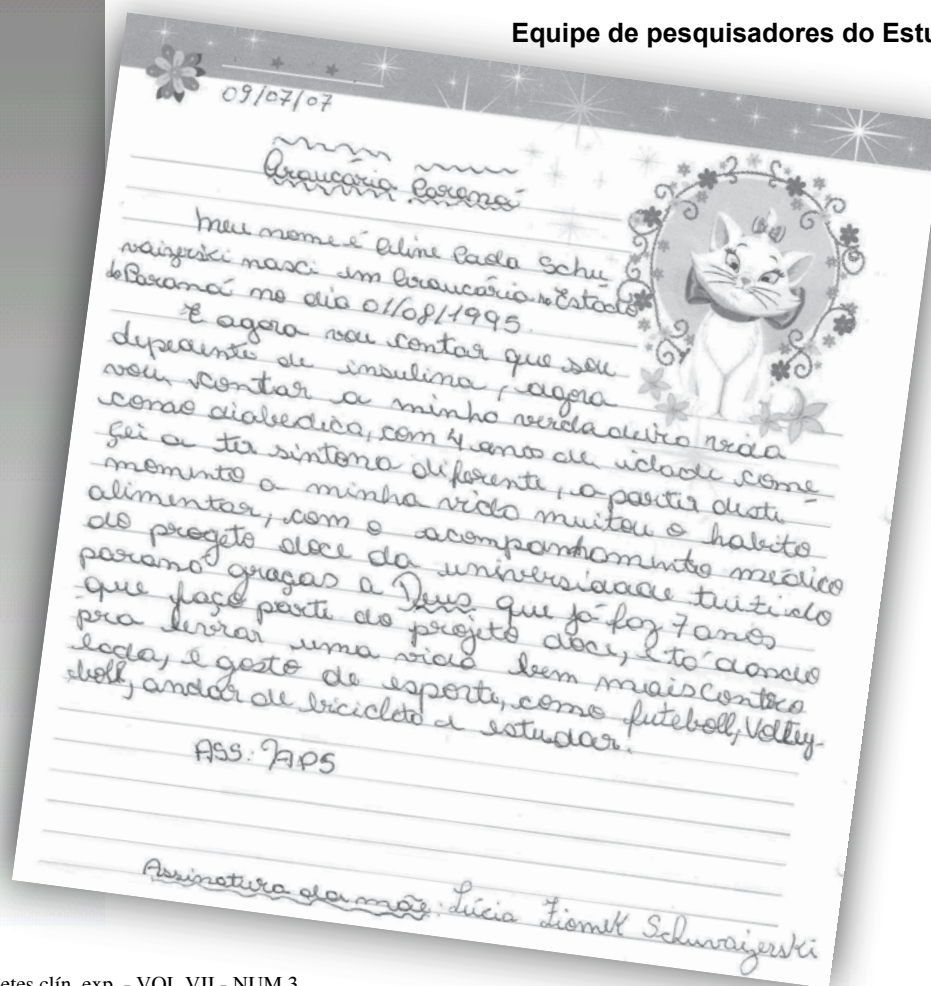 Equipe de pesquisadores do Estu
09/07/07
Araucária Paraná
Meu nome é Aline Paola Schu
vaizerski nasci em Araucária no Estado
do Paraná no dia 01/08/1995.
E agora vou contar que sou
depedente de insulina, agora
vou contar a minha verdadeira vida
como diabedica, com 4 anos de idade come
çei a ter sintona diferente, a partir deste
momento a minha vida muitou o habito
alimentar, com o acompanhamento médico
do progeto doce da universidade tuitido
paraná graças a Deus que já faz 7 anos
que faço parte do projeto doce, e tó dando
pra levrar uma vida bem mais contro
lada, e gosto de esporte, como futeboll, Volley-
boll, andar de bicicleta e estudar.
ASS: APS
Assinatura da mãe: Lúcia Ziomek Schuvaizerski
etes clín. exp. - VOL VII - NUM 3